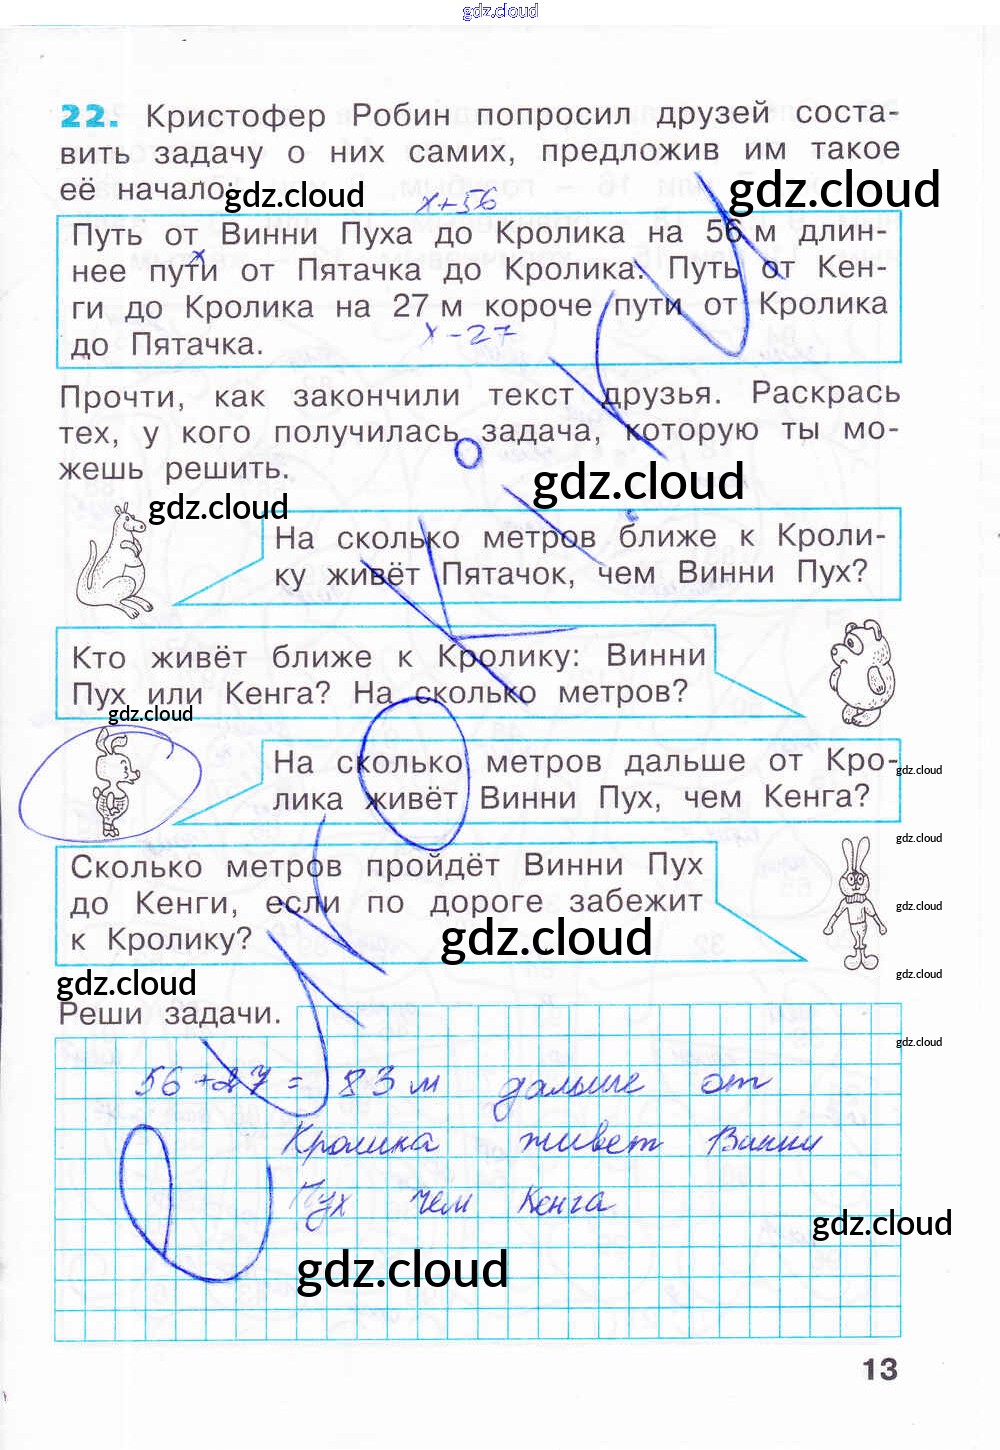 gdz.cloud
22. Кристофер Робин попросил друзей соста-
вить задачу о них самих, предложив им такое
её начало.
gdz.cloud
gdz.cloud
x+56
Путь от Винни Пуха до Кролика на 56 м длин-
x
нее пути от Пятачка до Кролика. Путь от Кен-
ги до Кролика на 27 м короче пути от Кролика
до Пятачка.
x-27
Прочти, как закончили текст друзья. Раскрась
тех, у кого получилась задача, которую ты мо-
жешь решить.
gdz.cloud
gdz.cloud
На сколько метров ближе к Кроли-
ку живёт Пятачок, чем Винни Пух?
Кто живёт ближе к Кролику: Винни
Пух или Кенга? На сколько метров?
gdz.cloud
На сколько метров дальше от Кро-
лика живёт Винни Пух, чем Кенга?
gdz.cloud
gdz.cloud
Сколько метров пройдёт Винни Пух
до Кенги, если по дороге забежит
к Кролику?
gdz.cloud
gdz.cloud
gdz.cloud
gdz.cloud
Реши задачи.
gdz.cloud
56+27=83м дальше от
Кролика живет Винни
Пух чем Кенга
gdz.cloud
gdz.cloud
13